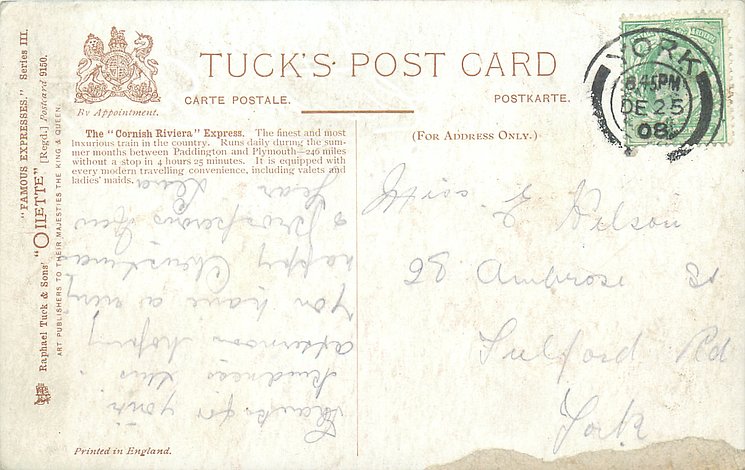 "FAMOUS EXPRESSES." Series III.
Raphael Tuck & Sons' "OILETTE" [Regd.] Postcard 9150.
ART PUBLISHERS TO THEIR MAJESTIES THE KING & QUEEN.
By Appointment.
TUCK'S POST CARD
CARTE POSTALE.
POSTKARTE.
The "Cornish Riviera" Express. The finest and most
luxurious train in the country. Runs daily during the sum-
mer months between Paddington and Plymouth—246 miles
without a stop in 4 hours 25 minutes. It is equipped with
every modern travelling convenience, including valets and
ladies' maids.
(FOR ADDRESS ONLY.)
YORK
8.45PM
DE 25
08
Thanks for your
kindness this
afternoon hoping
you have a very
happy Christmas
& prosperous New
Year. Lena
Miss E Nelson
28 Ambrose St
Fulford Rd
York
Printed in England.